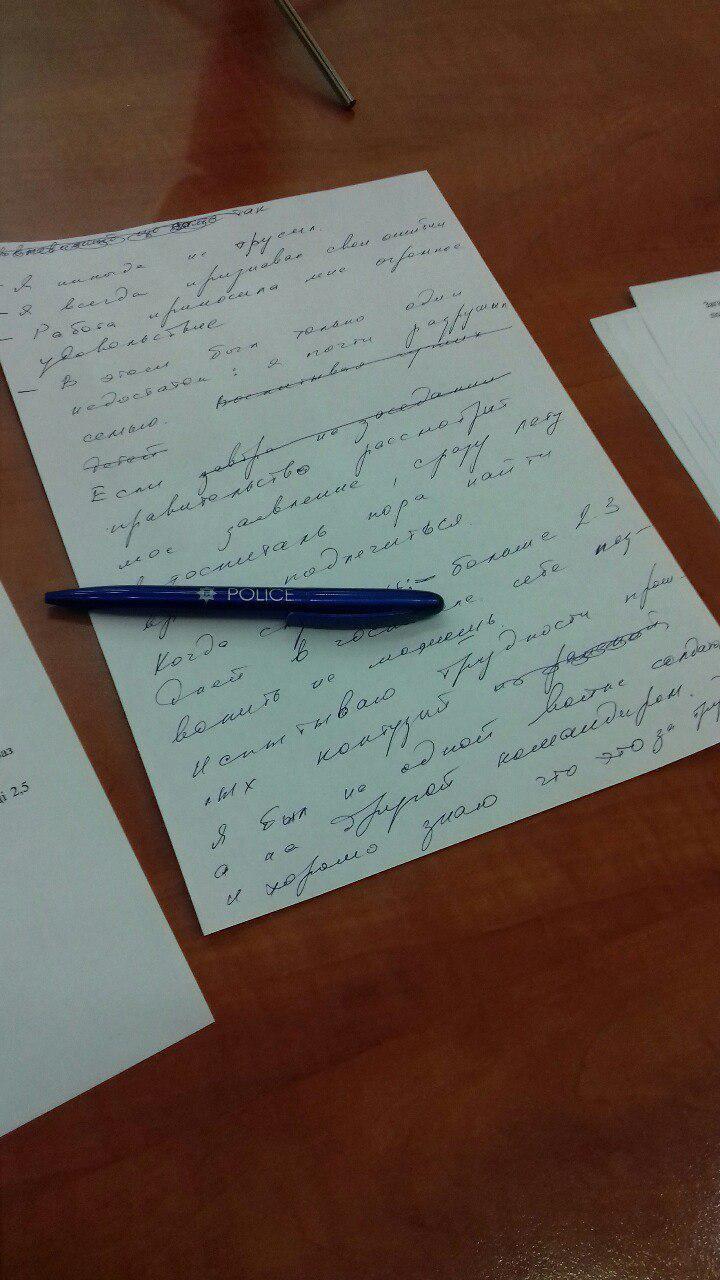 так
- Я никогда не трусил.
- Я всегда признавал свои ошибки
- Работа приносила мне огромное
удовольствие
- В этом был только один
недостаток: я почти разрушил
семью. воспитывал
Если завтра на заседании
правительство рассмотрит
мое заявление, сразу лягу
в госпиталь пора найти
подлечиться.
POLICE
Когда больше 23
дней в себе поз-
волить не можешь.
Испытываю трудности прош-
лых контузий
Я был на одной войне солдатом
а на другой командиром.
и хорошо знаю что это за
2.5